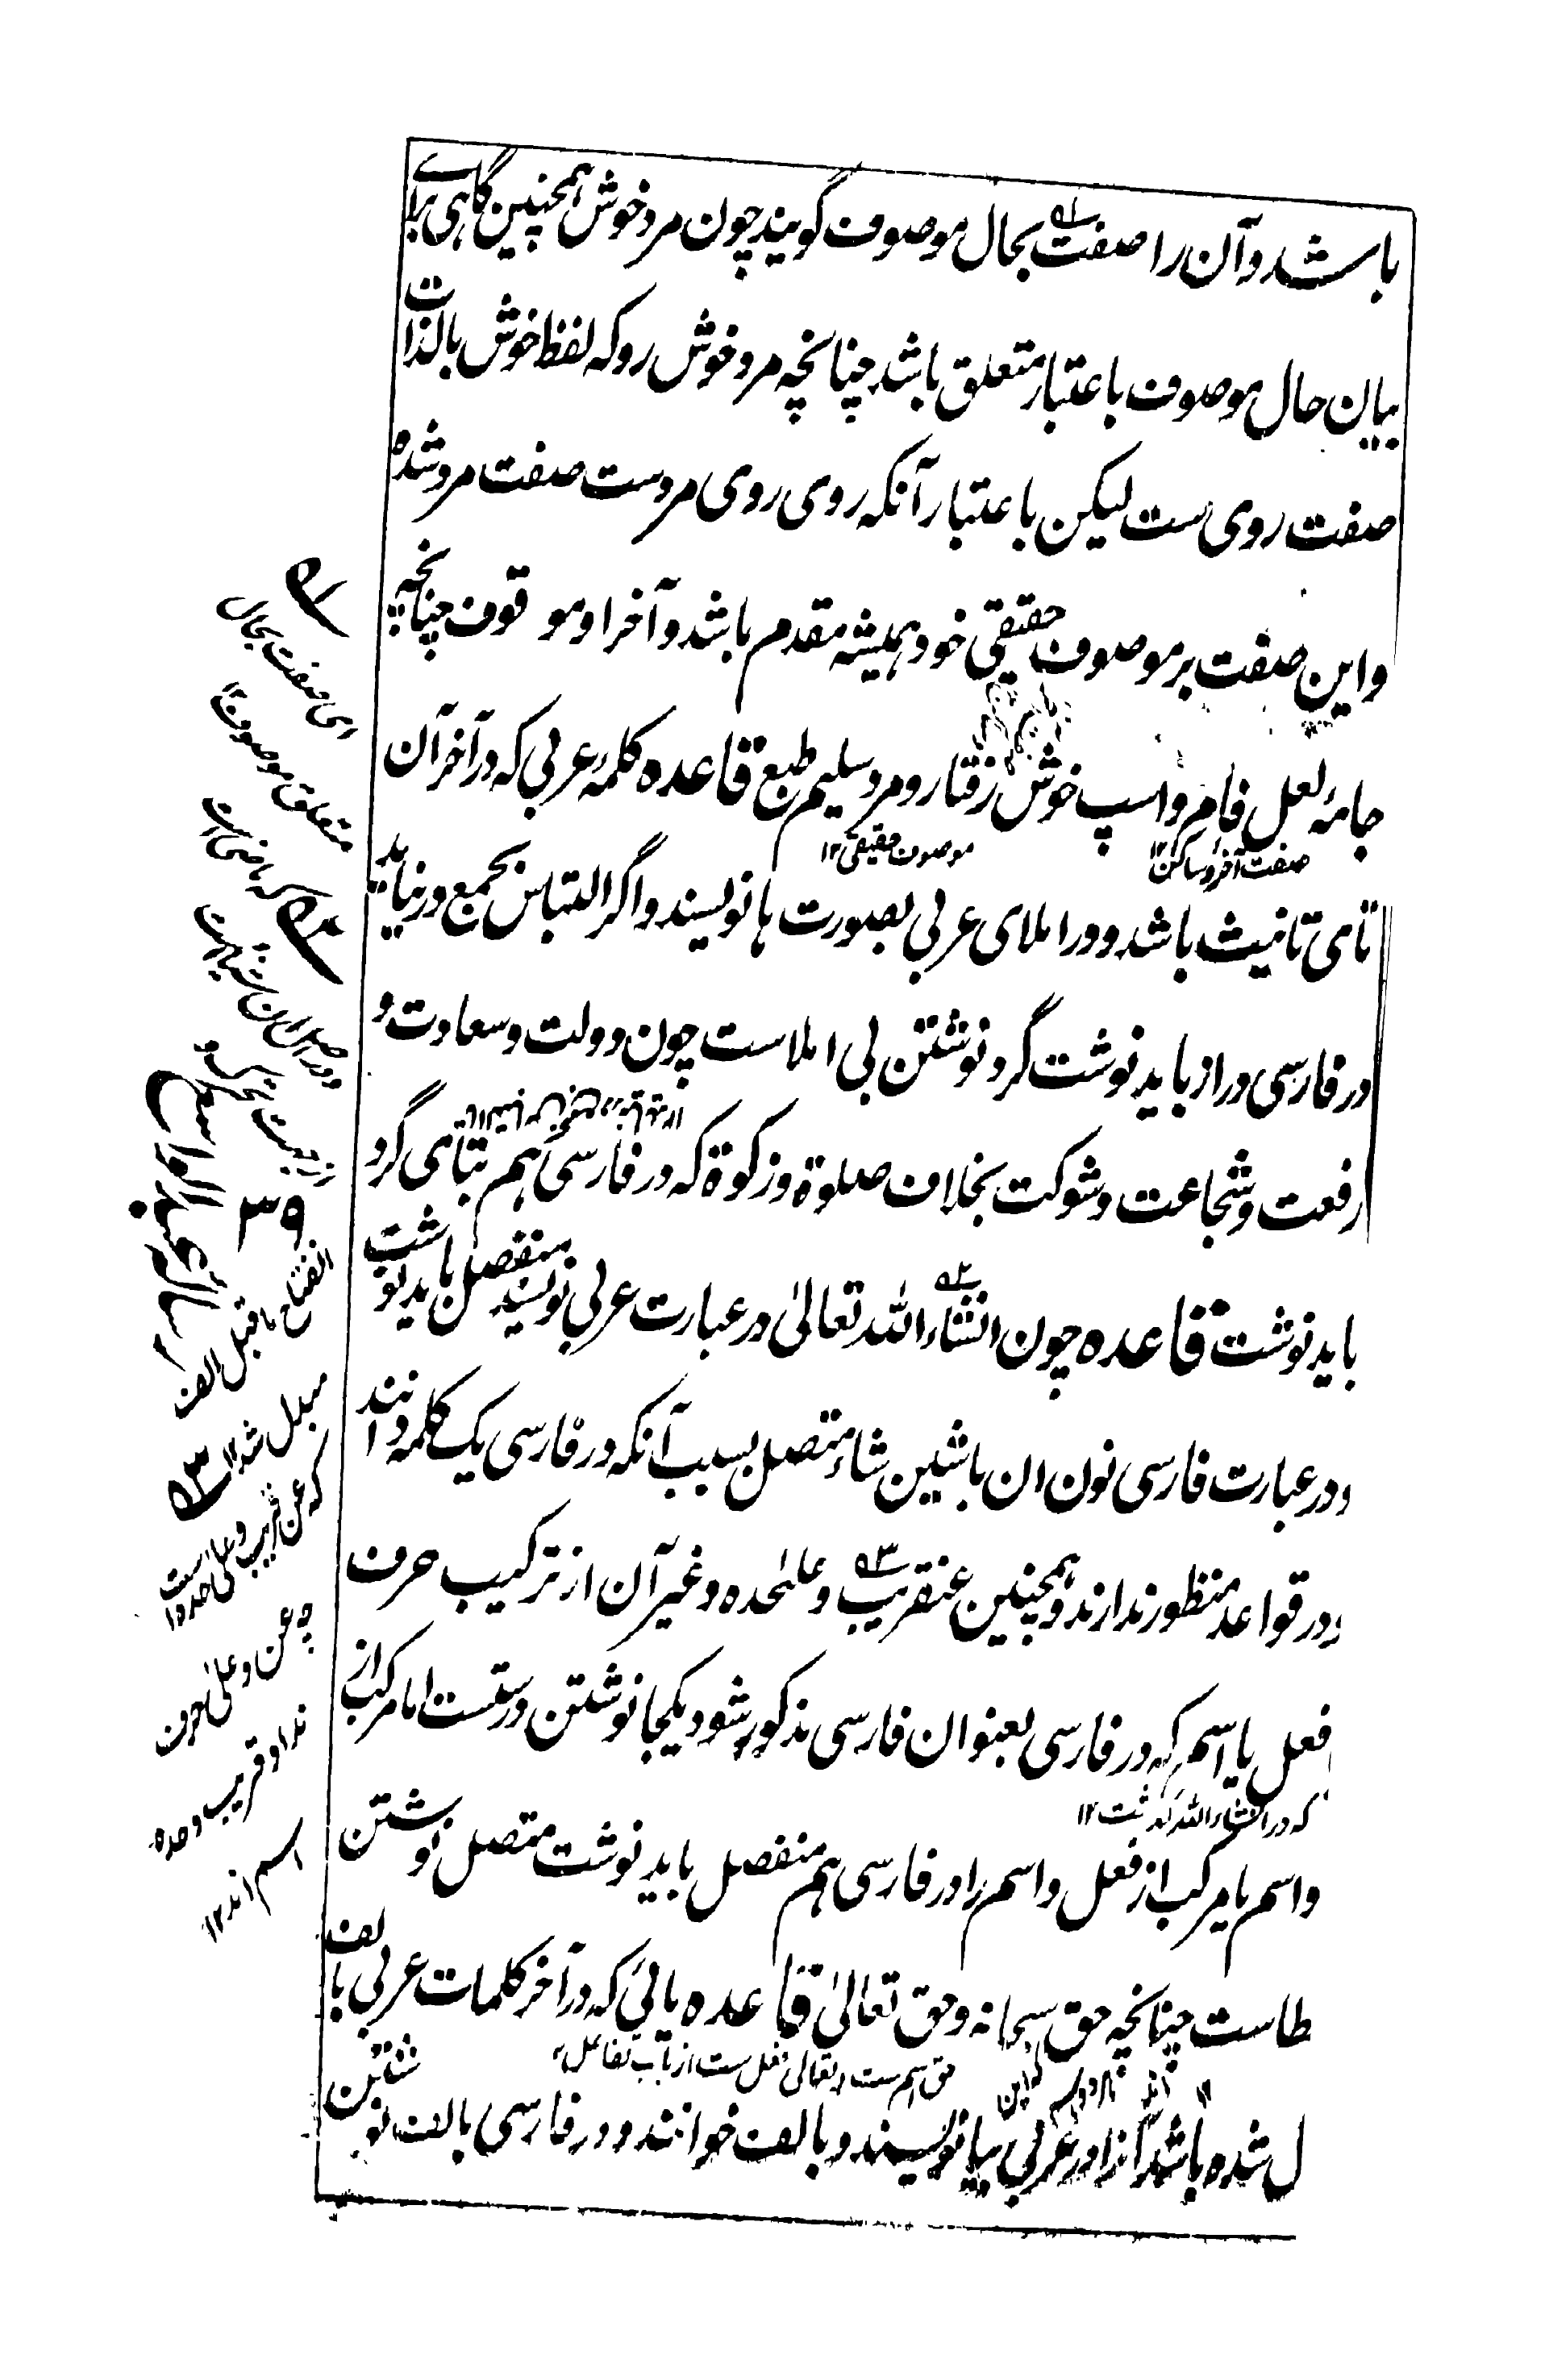 باشد و آن را صفت بحال موصوف گویند چون مرد خوش همچنین گاهی برای
بیان حال موصوف باعتبار متعلق باشد چنانچه مرد خوش رو که لفظ خوش بالذات
صفت روی ست لیکن باعتبار آنکه روی روی مردست صفت مرد شده
و این صفت بر موصوف حقیقی خود همیشه مقدم باشد و آخر او موقوف چنانچه
جامۀ لعل فام و اسپ خوش رفتار و مرد سلیم طبع قاعده کلمۀ عربی که در آخر آن
صفت آخر و ساکن ۱۲
موصوف حقیقی ۱۲
تای تانیث باشد و در املای عربی بصورت ها نویسند و اگر التباس بجمع در نیاید
در فارسی دراز باید نوشت گرد نوشتن بی املاست چون دولت و سعادت و
رفعت و شجاعت و شوکت بخلاف صلوة و زکوة که در فارسی هم بتای گرد
باید نوشت قاعده چون انشاء الله تعالیٰ در عبارت عربی نویسند منفصل باید نوشت
و در عبارت فارسی نون ان باشین شاء متصل بسبب آنکه در فارسی یک کلمه دانند
و در قواعد منظور ندارند و همچنین عنقریب و علیٰحده و غیر آن از ترکیب حرف
فعل یا اسم که در فارسی بعنوان فارسی مذکور شود یکجا نوشتن درستست اما مرکب از
که در انشاء الله گذشت ۱۲
و اسم یا مرکب از فعل و اسم را در فارسی هم منفصل باید نوشت متصل نوشتن
طاست چنانچه حق سبحانه و حق تعالیٰ قاعده یائی که در آخر کلمات عربی بالف
حق اسم ست و تعالی فعل ست از باب تفاعل
ل شده باشد آنرا در عربی بیا نویسند و بالف خوانند و در فارسی بالف نوشتن
۱
ای صفت بحال
متعلق موصوف ۱۲
۲
۳۹
انفتاح ماقبل الف
مبدل شد ۱۲
۳
که عن قریب و علی حده است
چه عن و علی حرف
اند و قریب و حده
اسم اند ۱۲